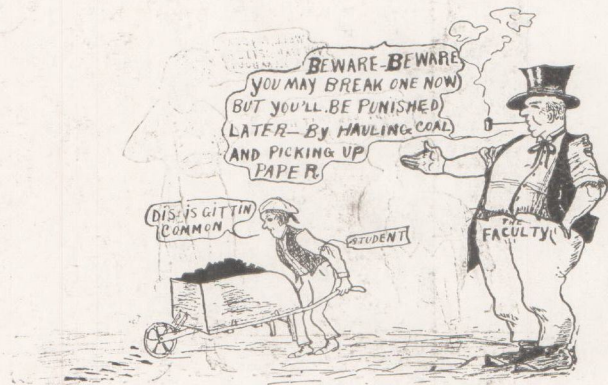 BEWARE-BEWARE
YOU MAY BREAK ONE NOW
BUT YOU'LL BE PUNISHED
LATER- BY HAULING COAL
AND PICKING UP
PAPER
DIS: IS GITTIN
COMMON
STUDENT
THE
FACULTY